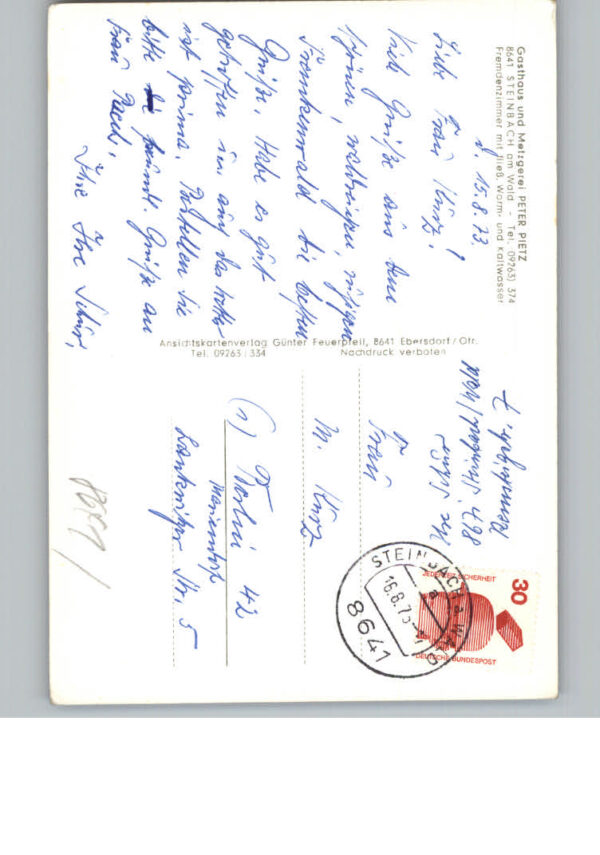 Gasthaus und Metzgerei PETER PIETZ
8641 STEINBACH am Wald - Tel. 09263) 374
Fremdenzimmer mit fließ. Warm- und Kaltwasser
d. 15.8.73.
Liebe Frau Kurz!
Viele Grüße aus dem
schönen, waldreichen, ruhigen
Frankenwald die besten
Grüße. Habe es gut
getroffen und auch das Wetter
ist prima. Bestellen Sie
bitte freundl. Grüße an
Frau
Ihre
Ansichtskartenverlag Günter Feuerpfeil, 8641 Ebersdorf/Ofr.
Tel. 09263/334 Nachdruck verboten
Frau
M. Kurz
(1) Berlin 42
Mariendorf
Lankwitzer Str. 5
STEINBACH a WALD
a
16.8.73
8641
30
JEDERZEIT SICHERHEIT
DEUTSCHE BUNDESPOST
8641